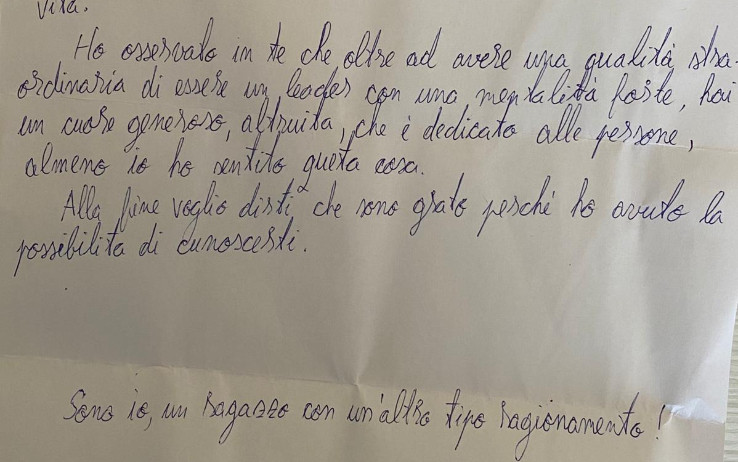 vita.
Ho osservato in te che oltre ad avere una qualità stra-
ordinaria di essere un leader con una mentalità forte, hai
un cuore generoso, altruita, che è dedicato alle persone,
almeno io ho sentito questa cosa.
Alla fine voglio dirti che sono grato perché ho avuto la
possibilita di cunoscerti.
Sono io, un ragazzo con un'altro tipo ragionamento!